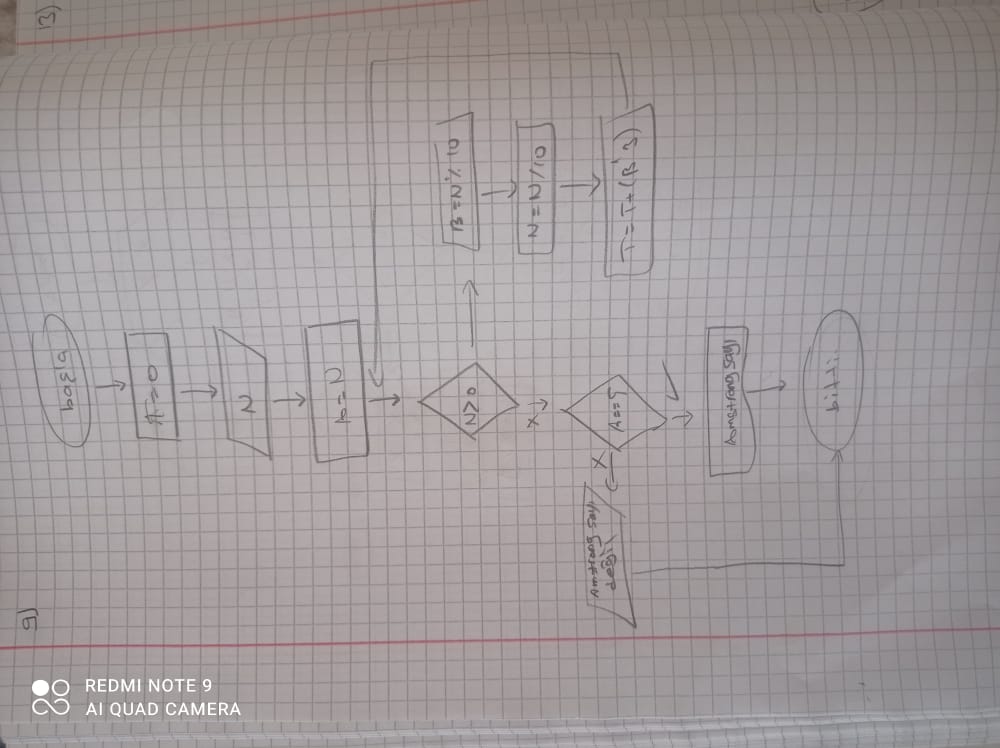 9)
başla
A=0
N
A=N
N>0
B=N%10
N=N/10
T=T+(B^3)
A==S
Armstrong sayı
değil
Armstrong sayı
bitti
13)
REDMI NOTE 9
AI QUAD CAMERA